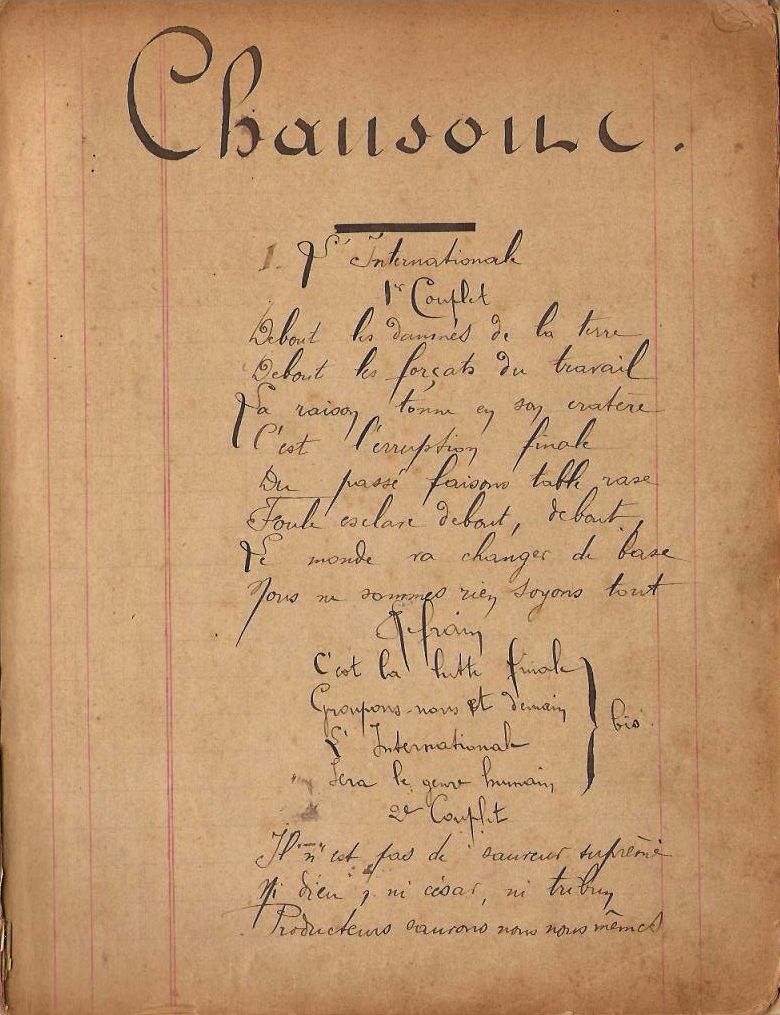 Chansons.
1. L'Internationale
1er Couplet
Debout les damnés de la terre
Debout les forçats du travail
La raison tonne en son cratère
C'est l'erruption finale
Du passé faisons table rase
Foule esclave debout, debout,
Le monde va changer de base
Nous ne sommes rien soyons tout
Refrain
C'est la lutte finale
Groupons-nous et demain
L'Internationale
Sera le genre humain
bis.
2e Couplet
Il n'est pas de sauveur suprême
Ni dieu, ni césar, ni tribun,
Producteurs sauvons nous nous mêmes